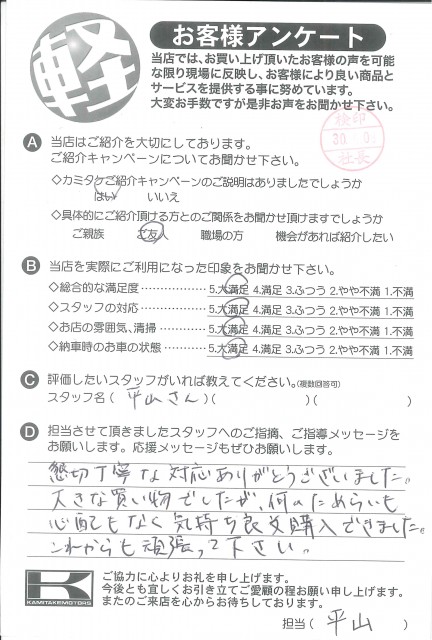 軽
お客様アンケート
当店では、お買い上げ頂いたお客様の声を可能
な限り現場に反映し、お客様により良い商品と
サービスを提供する事に努めています。
大変お手数ですが是非お声をお聞かせ下さい。
検印
30.
社長
A 当店はご紹介を大切にしております。
ご紹介キャンペーンについてお聞かせ下さい。
◇カミタケご紹介キャンペーンのご説明はありましたでしょうか
はい いいえ
◇具体的にご紹介頂ける方とのご関係をお聞かせ頂けますでしょうか
ご親族 ご友人 職場の方 機会があれば紹介したい
B 当店を実際にご利用になった印象をお聞かせ下さい。
◇総合的な満足度‥‥‥‥‥ 5.大満足 4.満足 3.ふつう 2.やや不満 1.不満
◇スタッフの対応‥‥‥‥‥ 5.大満足 4.満足 3.ふつう 2.やや不満 1.不満
◇お店の雰囲気、清掃‥‥‥ 5.大満足 4.満足 3.ふつう 2.やや不満 1.不満
◇納車時のお車の状態‥‥‥ 5.大満足 4.満足 3.ふつう 2.やや不満 1.不満
C 評価したいスタッフがいれば教えてください。(複数回答可)
スタッフ名( 平山さん )( )( )
D 担当させて頂きましたスタッフへのご指摘、ご指導メッセージを
お願いします。応援メッセージもぜひお願いします。
懇切丁寧な対応ありがとうございました。
大きな買い物でしたが、何のためらいも
心配もなく気持ち良く購入できました。
これからも頑張って下さい。
K
KAMITAKEMOTORS
ご協力に心よりお礼を申し上げます。
今後とも宜しくお引き立てご愛顧の程お願い申し上げます。
またのご来店を心からお待ちしております。
担当( 平山 )